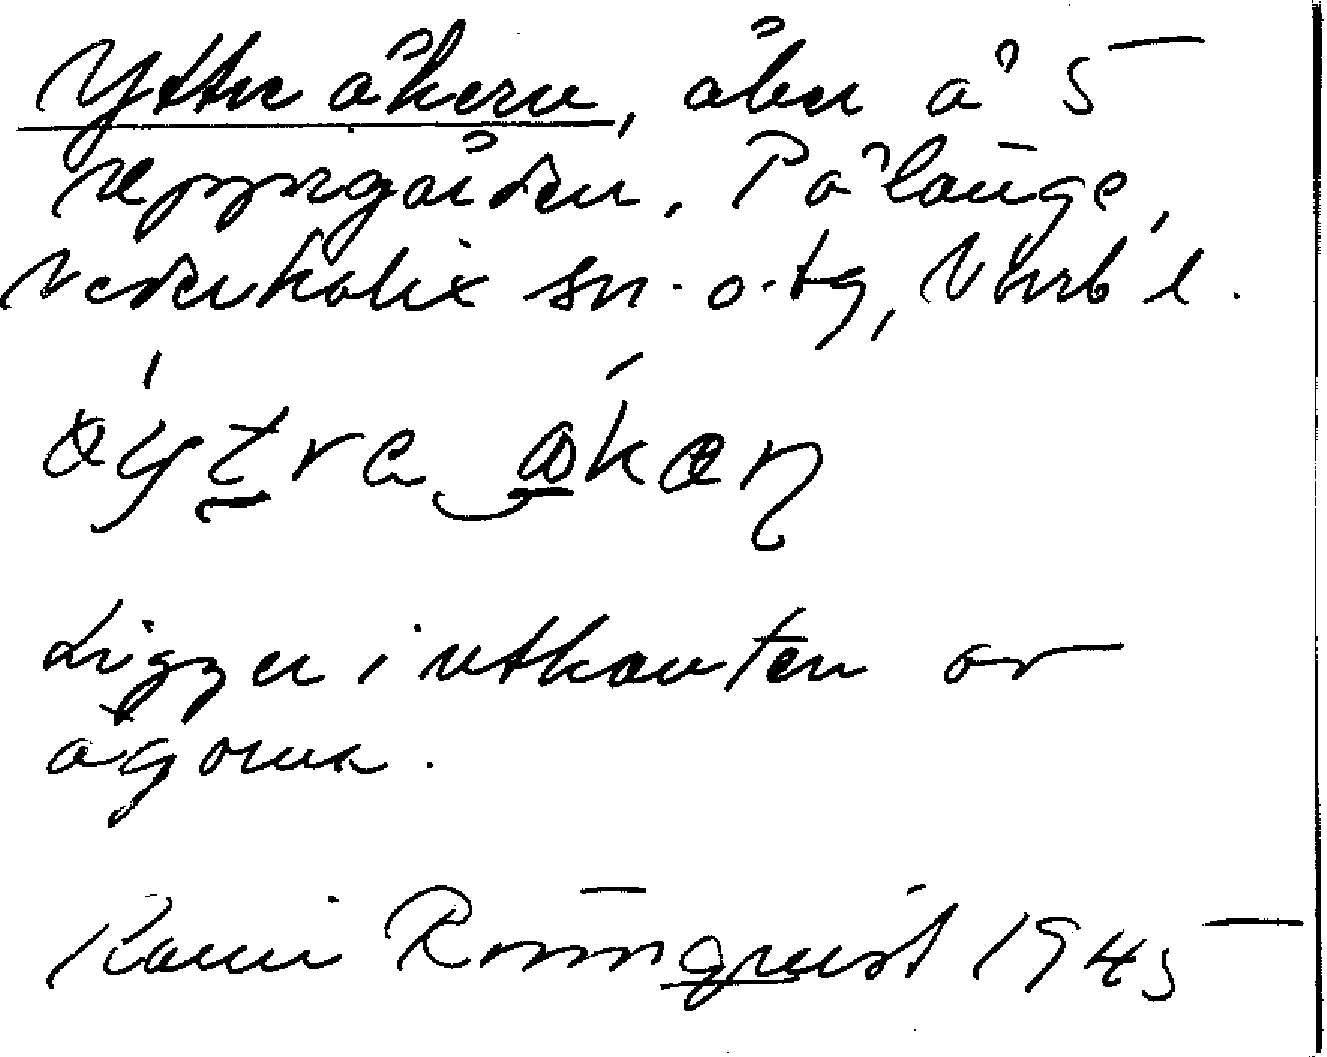 Yttre åkern, åker å 5
reppsgården, Pålänge,
Nederkalix sn. o. tg, Vnrb l.
Ligger i utkanten av
ägorna.
Karin Rönnqvist 1945